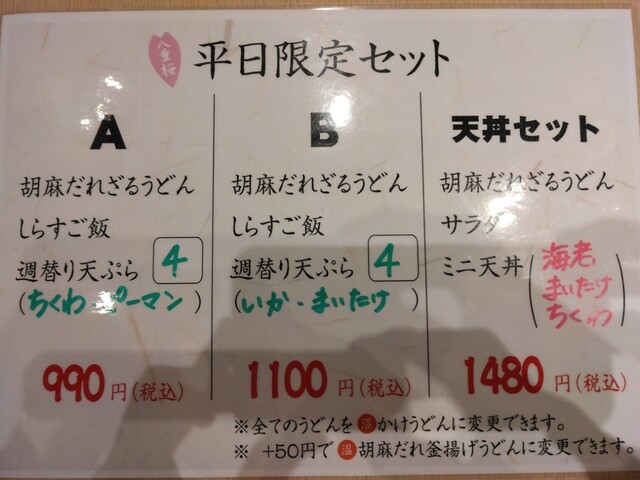 八重桜
平日限定セット
A
胡麻だれざるうどん
しらすご飯
週替り天ぷら 4
(ちくわ・ピーマン)
990円(税込)
B
胡麻だれざるうどん
しらすご飯
週替り天ぷら 4
(いか・まいたけ)
1100円(税込)
天丼セット
胡麻だれざるうどん
サラダ
ミニ天丼(海老
まいたけ
ちくわ)
1480円(税込)
※全てのうどんを温かけうどんに変更できます。
※ +50円で温胡麻だれ釜揚げうどんに変更できます。